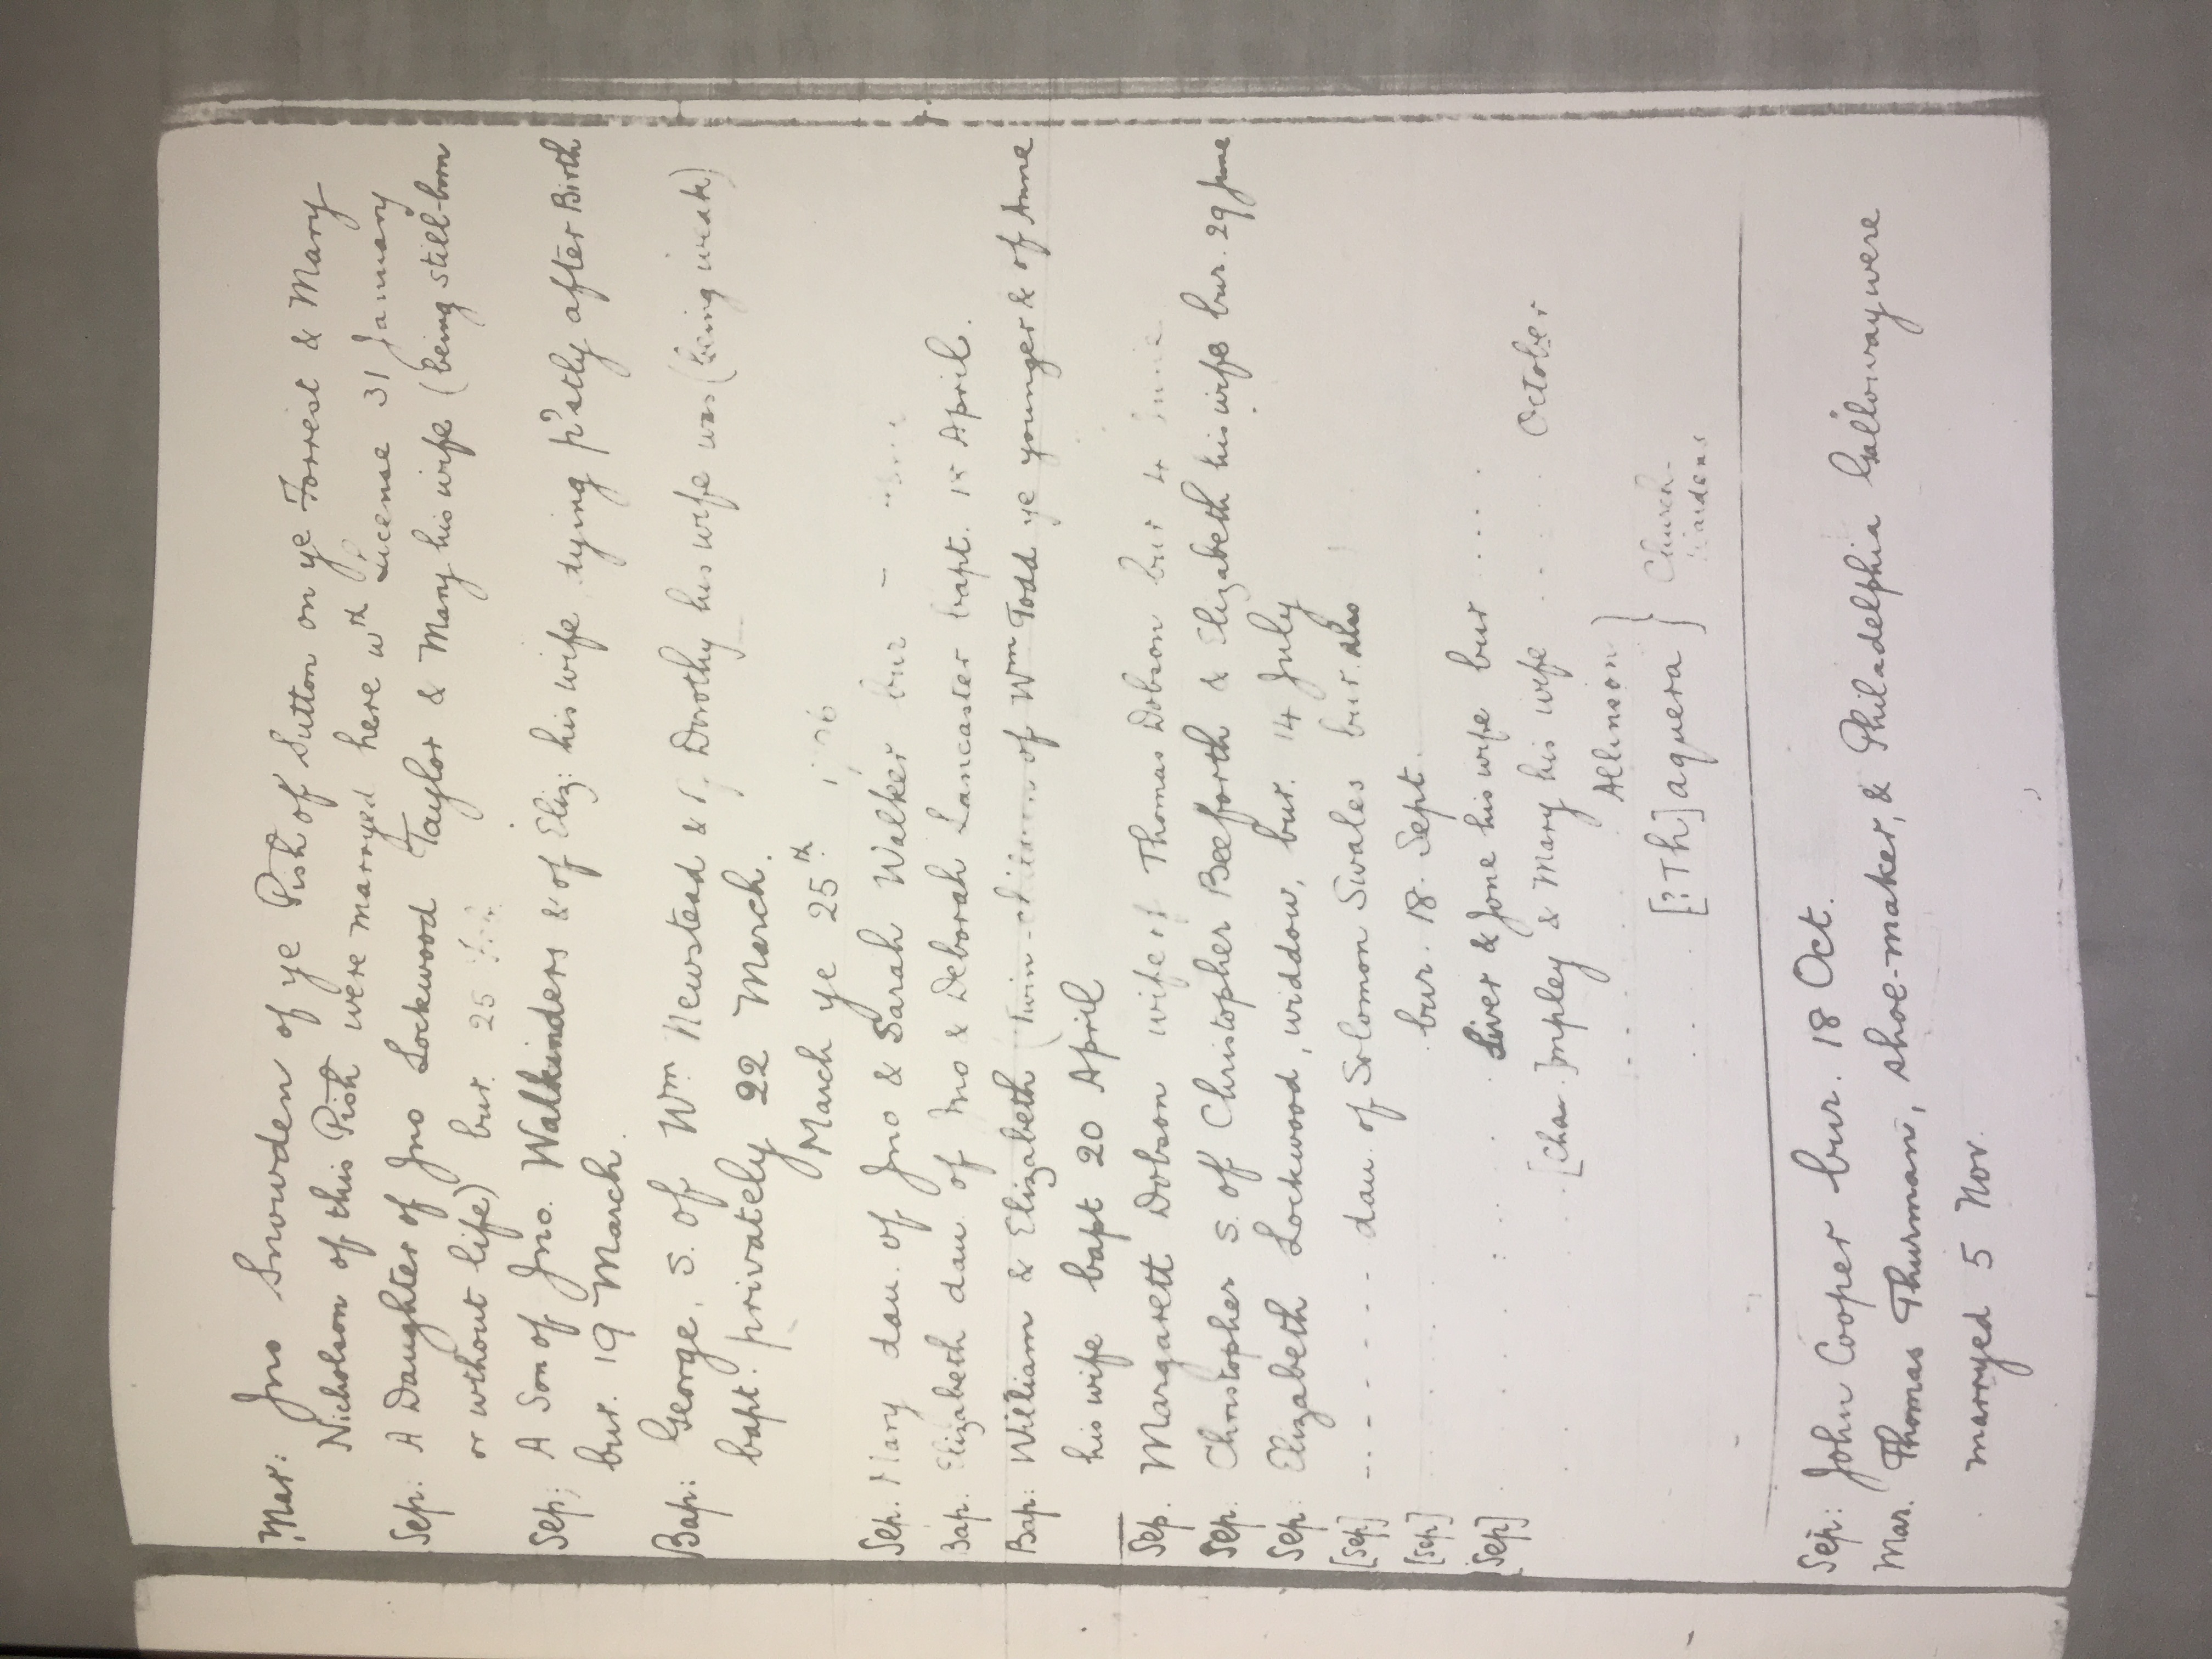 Mar: Jno Snowden of ye Pish of Sutton on ye Forrest & Mary
Nicholson of this Pish were marryed here wth License 31 January
Sep: A Daughter of Jno Lockwood Taylor & Mary his wife (being still-born
or without life) bur. 25
Sep: A Son of Jno. Walkinders & of Eliz: his wife dying p?stly after Birth
bur. 19 March.
Bap: George, S. of Wm. Newstead & of Dorothy his wife was (being weak)
bapt. privately 22 March.
March ye 25th
Sep. Mary dau. of Jno & Sarah Walker bur
Bap. Elizabeth dau. of Jno & Deborah Lancaster bapt. April.
Bap: William & Elizabeth (twin-children of Wm Todd ye younger & of Anne
his wife bapt 20 April
Sep. Margarett Dobson wife of Thomas Dobson bur 4 June
Sep. Christopher S. of Christopher Beeforth & Elizabeth his wife bur. 29 June
Sep: Elizabeth Lockwood, widdow, bur. 14 July
[Sep] ------- dau. of Solomon Swales bur. also
[Sep] . . . . bur. 18. Sept.
[Sep] . . . . Liver & Jone his wife bur . . . .
. . . [cha. ]mpley & Mary his wife . . . . October
. . . . Allinson } Church-
. . . [?Th]aquera } wardens
Sep: John Cooper bur. 18 Oct.
Mar. Thomas Thurman, shoe-maker, & Philadelphia Galloway were
marryed 5 Nov.